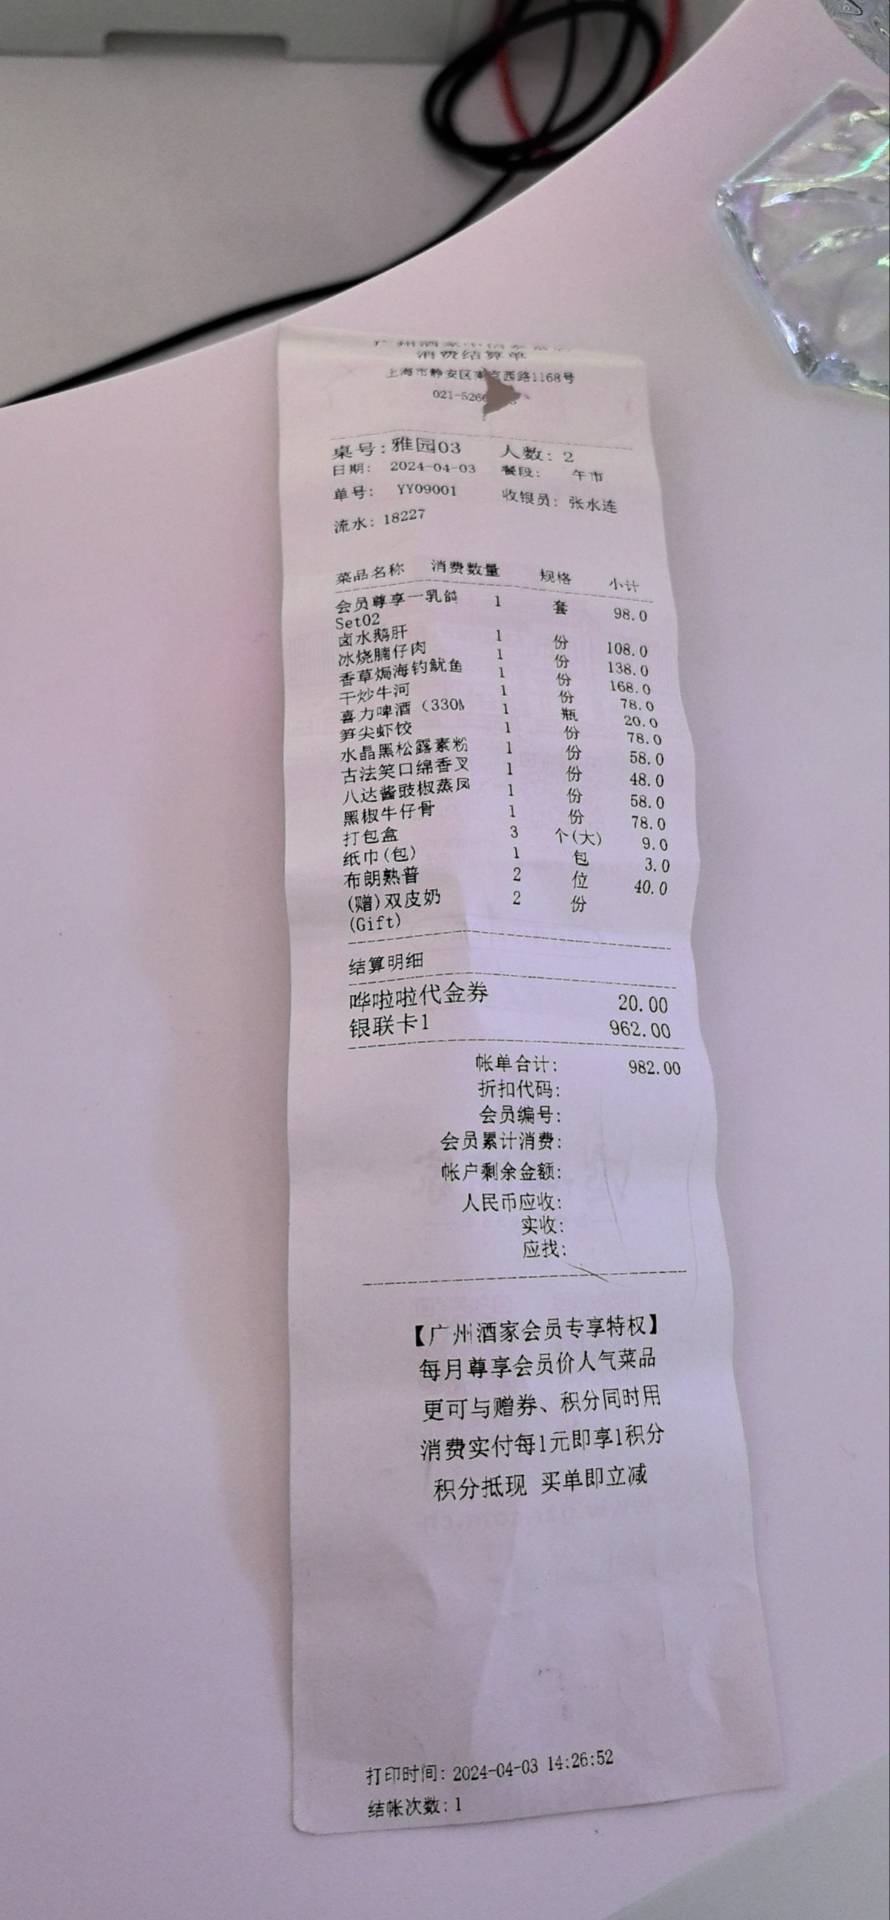 消费结算单
上海市静安区南京西路1168号
021-526
桌号:雅园03 人数: 2
日期: 2024-04-03 餐段: 午市
单号: YY09001 收银员: 张水连
流水: 18227
菜品名称 消费数量 规格 小计
会员尊享一乳鸽 1 套 98.0
Set02
卤水鹅肝 1 份 108.0
冰烧腩仔肉 1 份 138.0
香草焗海钓鱿鱼 1 份 168.0
干炒牛河 1 份 78.0
喜力啤酒（330M 1 瓶 20.0
笋尖虾饺 1 份 78.0
水晶黑松露素粉 1 份 58.0
古法笑口绵香叉 1 份 48.0
八达酱豉椒蒸凤 1 份 58.0
黑椒牛仔骨 1 份 78.0
打包盒 3 个(大) 9.0
纸巾(包) 1 包 3.0
布朗熟普 2 位 40.0
(赠)双皮奶 2 份
(Gift)
结算明细
哗啦啦代金券 20.00
银联卡1 962.00
帐单合计: 982.00
折扣代码:
会员编号:
会员累计消费:
帐户剩余金额:
人民币应收:
实收:
应找:
【广州酒家会员专享特权】
每月尊享会员价人气菜品
更可与赠券、积分同时用
消费实付每1元即享1积分
积分抵现 买单即立减
打印时间: 2024-04-03 14:26:52
结帐次数: 1